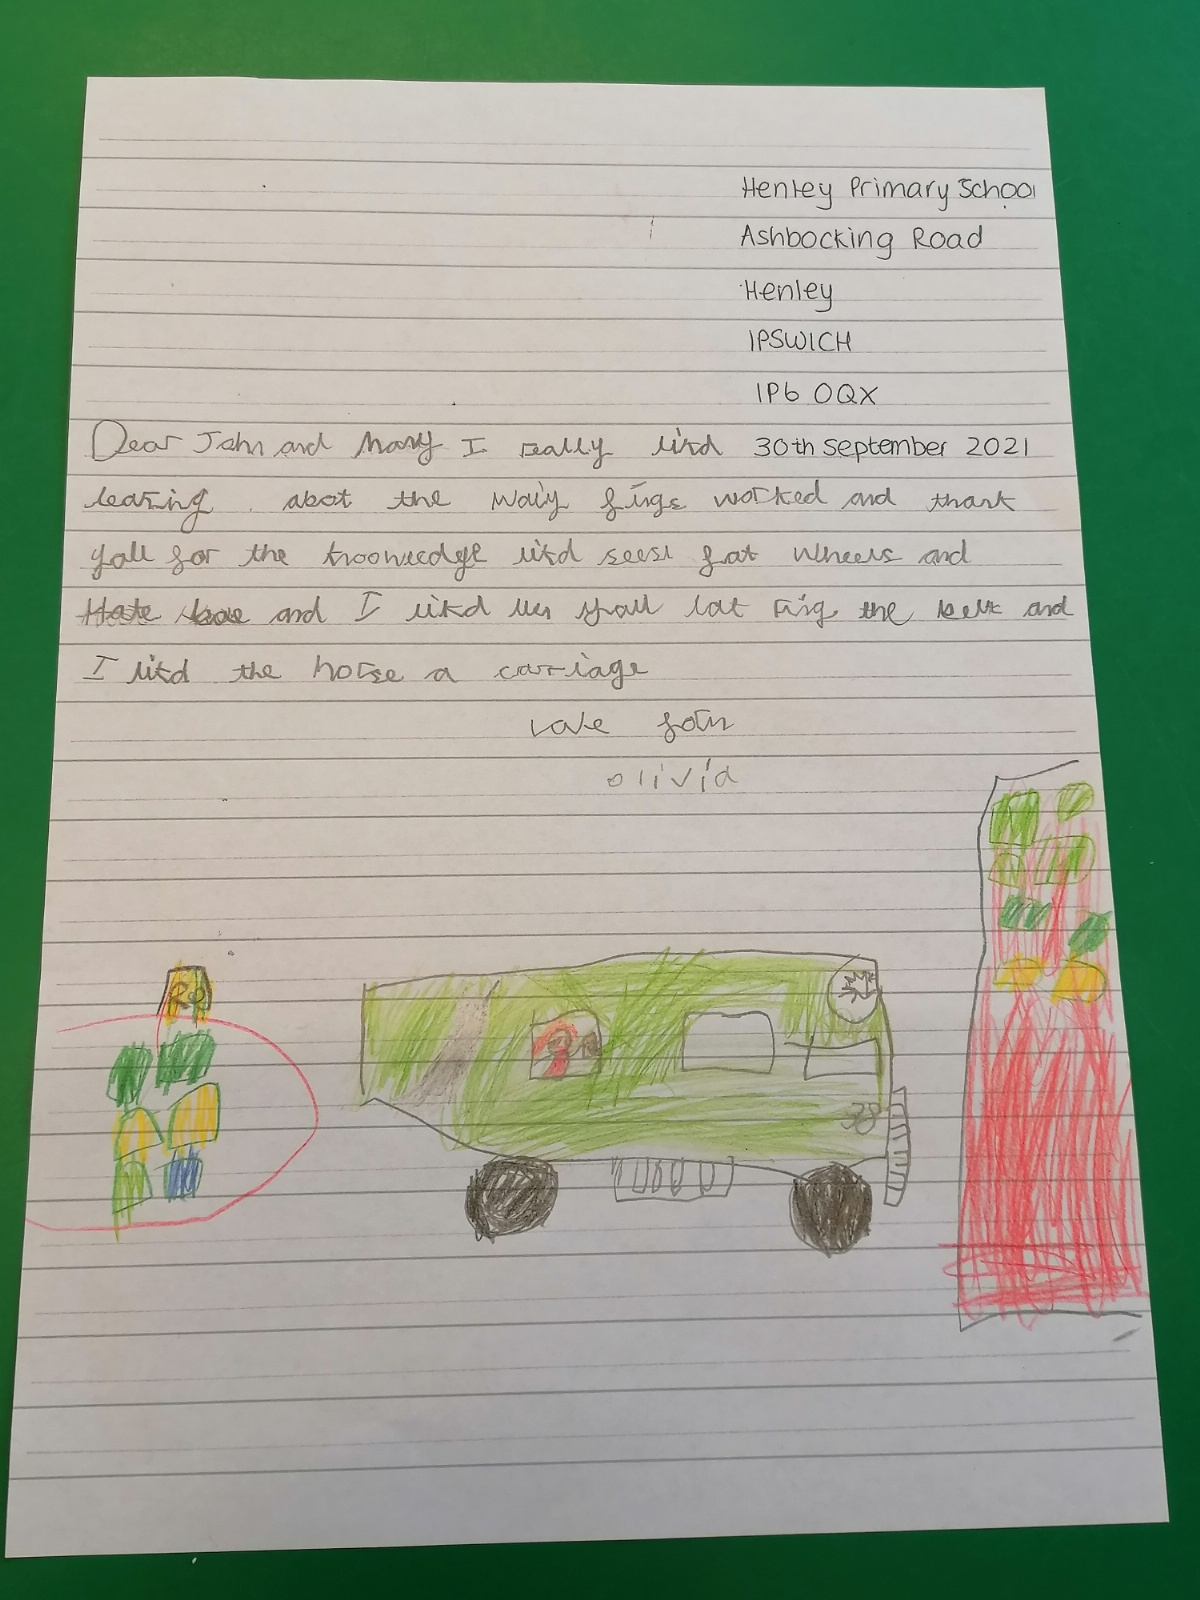 Henley Primary School
Ashbocking Road
Henley
IPSWICH
IP6 0QX
Dear John and Mary I really likd 30th September 2021
learing abot the waiy fings worked and thank
yall for the knoowledge likd fat wheels and
and I likd the and
I likd the horse a carriage
love fom
olivia
38